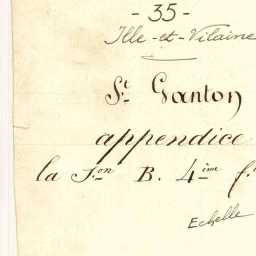 - 35 -
Ille-et-Vilaine
St Ganton
appendice
la Son B. 4ème f.
Echelle